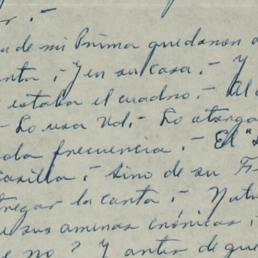 r. –
a de mi Prima quedaron a
enta, – Y en su casa. – Y
estaba el cuadro. – Al
– Lo usa Vd. – Lo otorga
da frecuencia. – El "
casilla, – sino de su F
tregar la carta, – Natu
e sus amenas crónicas,
e no? Y antes de que